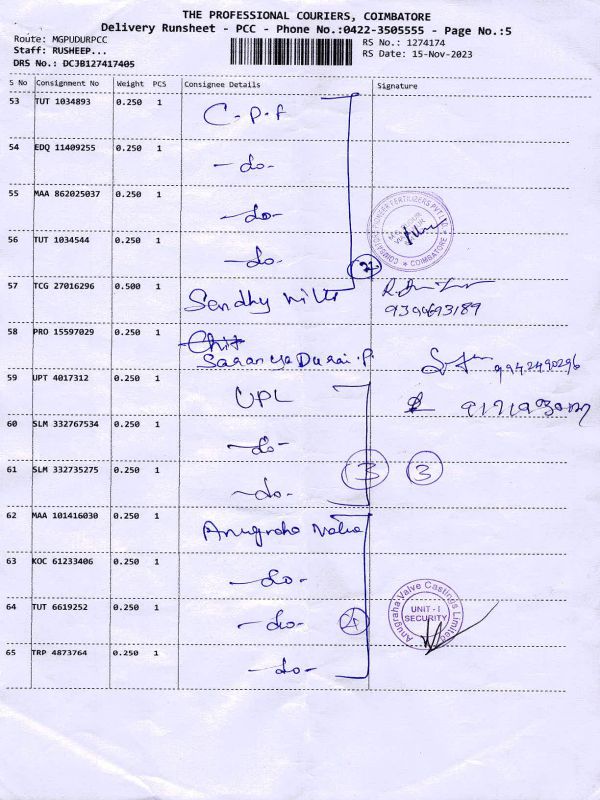 THE PROFESSIONAL COURIERS, COIMBATORE
Delivery Runsheet - PCC - Phone No.:0422-3505555 - Page No.:5
Route: MGPUDURPCC
RS No.: 1274174
Staff: RUSHEEP...
RS Date: 15-Nov-2023
DRS No.: DCJB127417405
S No Consignment No Weight PCS Consignee Details Signature
53 TUT 1034893 0.250 1 C.P.F
54 EDQ 11409255 0.250 1 -do-
55 MAA 862025037 0.250 1 -do-
56 TUT 1034544 0.250 1 -do-
COIMBATORE PIONEER FERTILIZERS PVT. LTD.
COIMBATORE
57 TCG 27016296 0.500 1 Sendhy
9394693189
58 PRO 15597029 0.250 1 Chit
Saranya Durai.P. 9942490296
59 UPT 4017312 0.250 1 UPL
60 SLM 332767534 0.250 1 -do-
61 SLM 332735275 0.250 1 -do- 3 3
62 MAA 101416030 0.250 1 Anugraha Valve
63 KOC 61233406 0.250 1 -do-
64 TUT 6619252 0.250 1 -do- 4
Anugraha Valve Castings Limited
UNIT - I
SECURITY
65 TRP 4873764 0.250 1 -do-